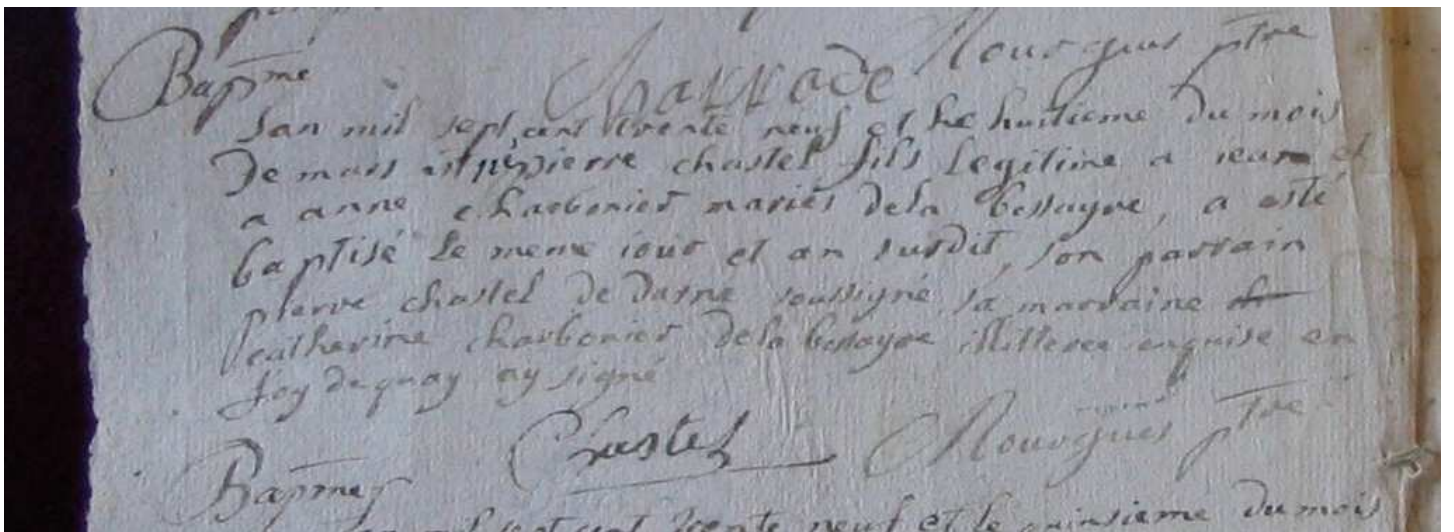 Bapme Charrade Nourgues ptre
Lan mil sept cent trente neuf et le huitieme du mois
de mars est né pierre chastel fils legitime a jean et
a anne charbonier mariés dela bessayre, a esté
baptisé le meme iour et an susdit, son parrain
pierre chastel de darne soussigné, sa marraine
catherine charbonier dela bessayre illiteree enquise en
foy dequoy ay signé
Chastel Nourgues ptre
Bapme
sept cent trente neuf et le quinsieme du mois